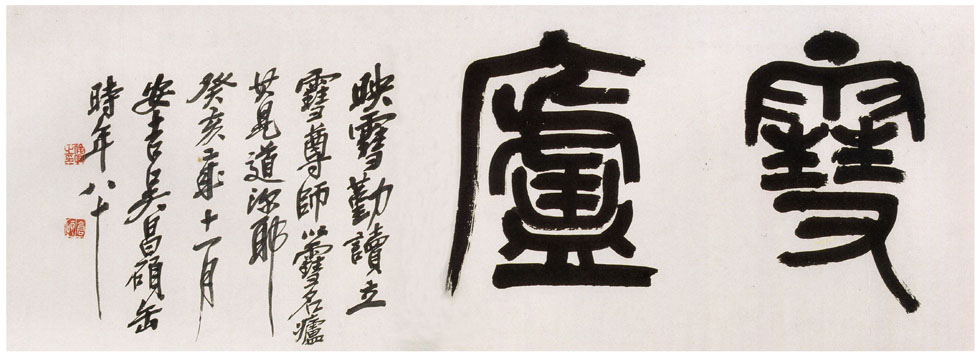 雪廬
映雪勤讀立
雪尊師以雪名廬
其見道深耶
癸亥年十一月
安吉吳昌碩缶
時年八十